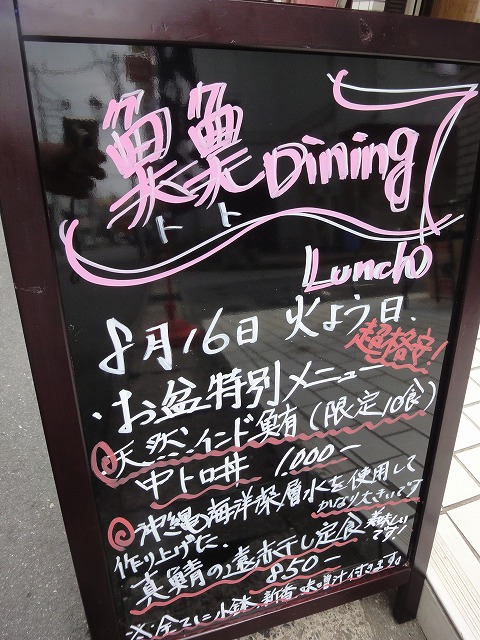 魚魚 Dining
トト
Lunch
8月16日 火よう日.
超格安!
・お盆特別メニュー
天然インド鮪(限定10食)
中トロ丼 1,000ー
かなり大きいです
沖縄の海洋深層水を使用して
作り上げた、
真鯖の遠赤干し定食 美味しいです!
850ー
※全てに小鉢、新香、味噌汁付きます。